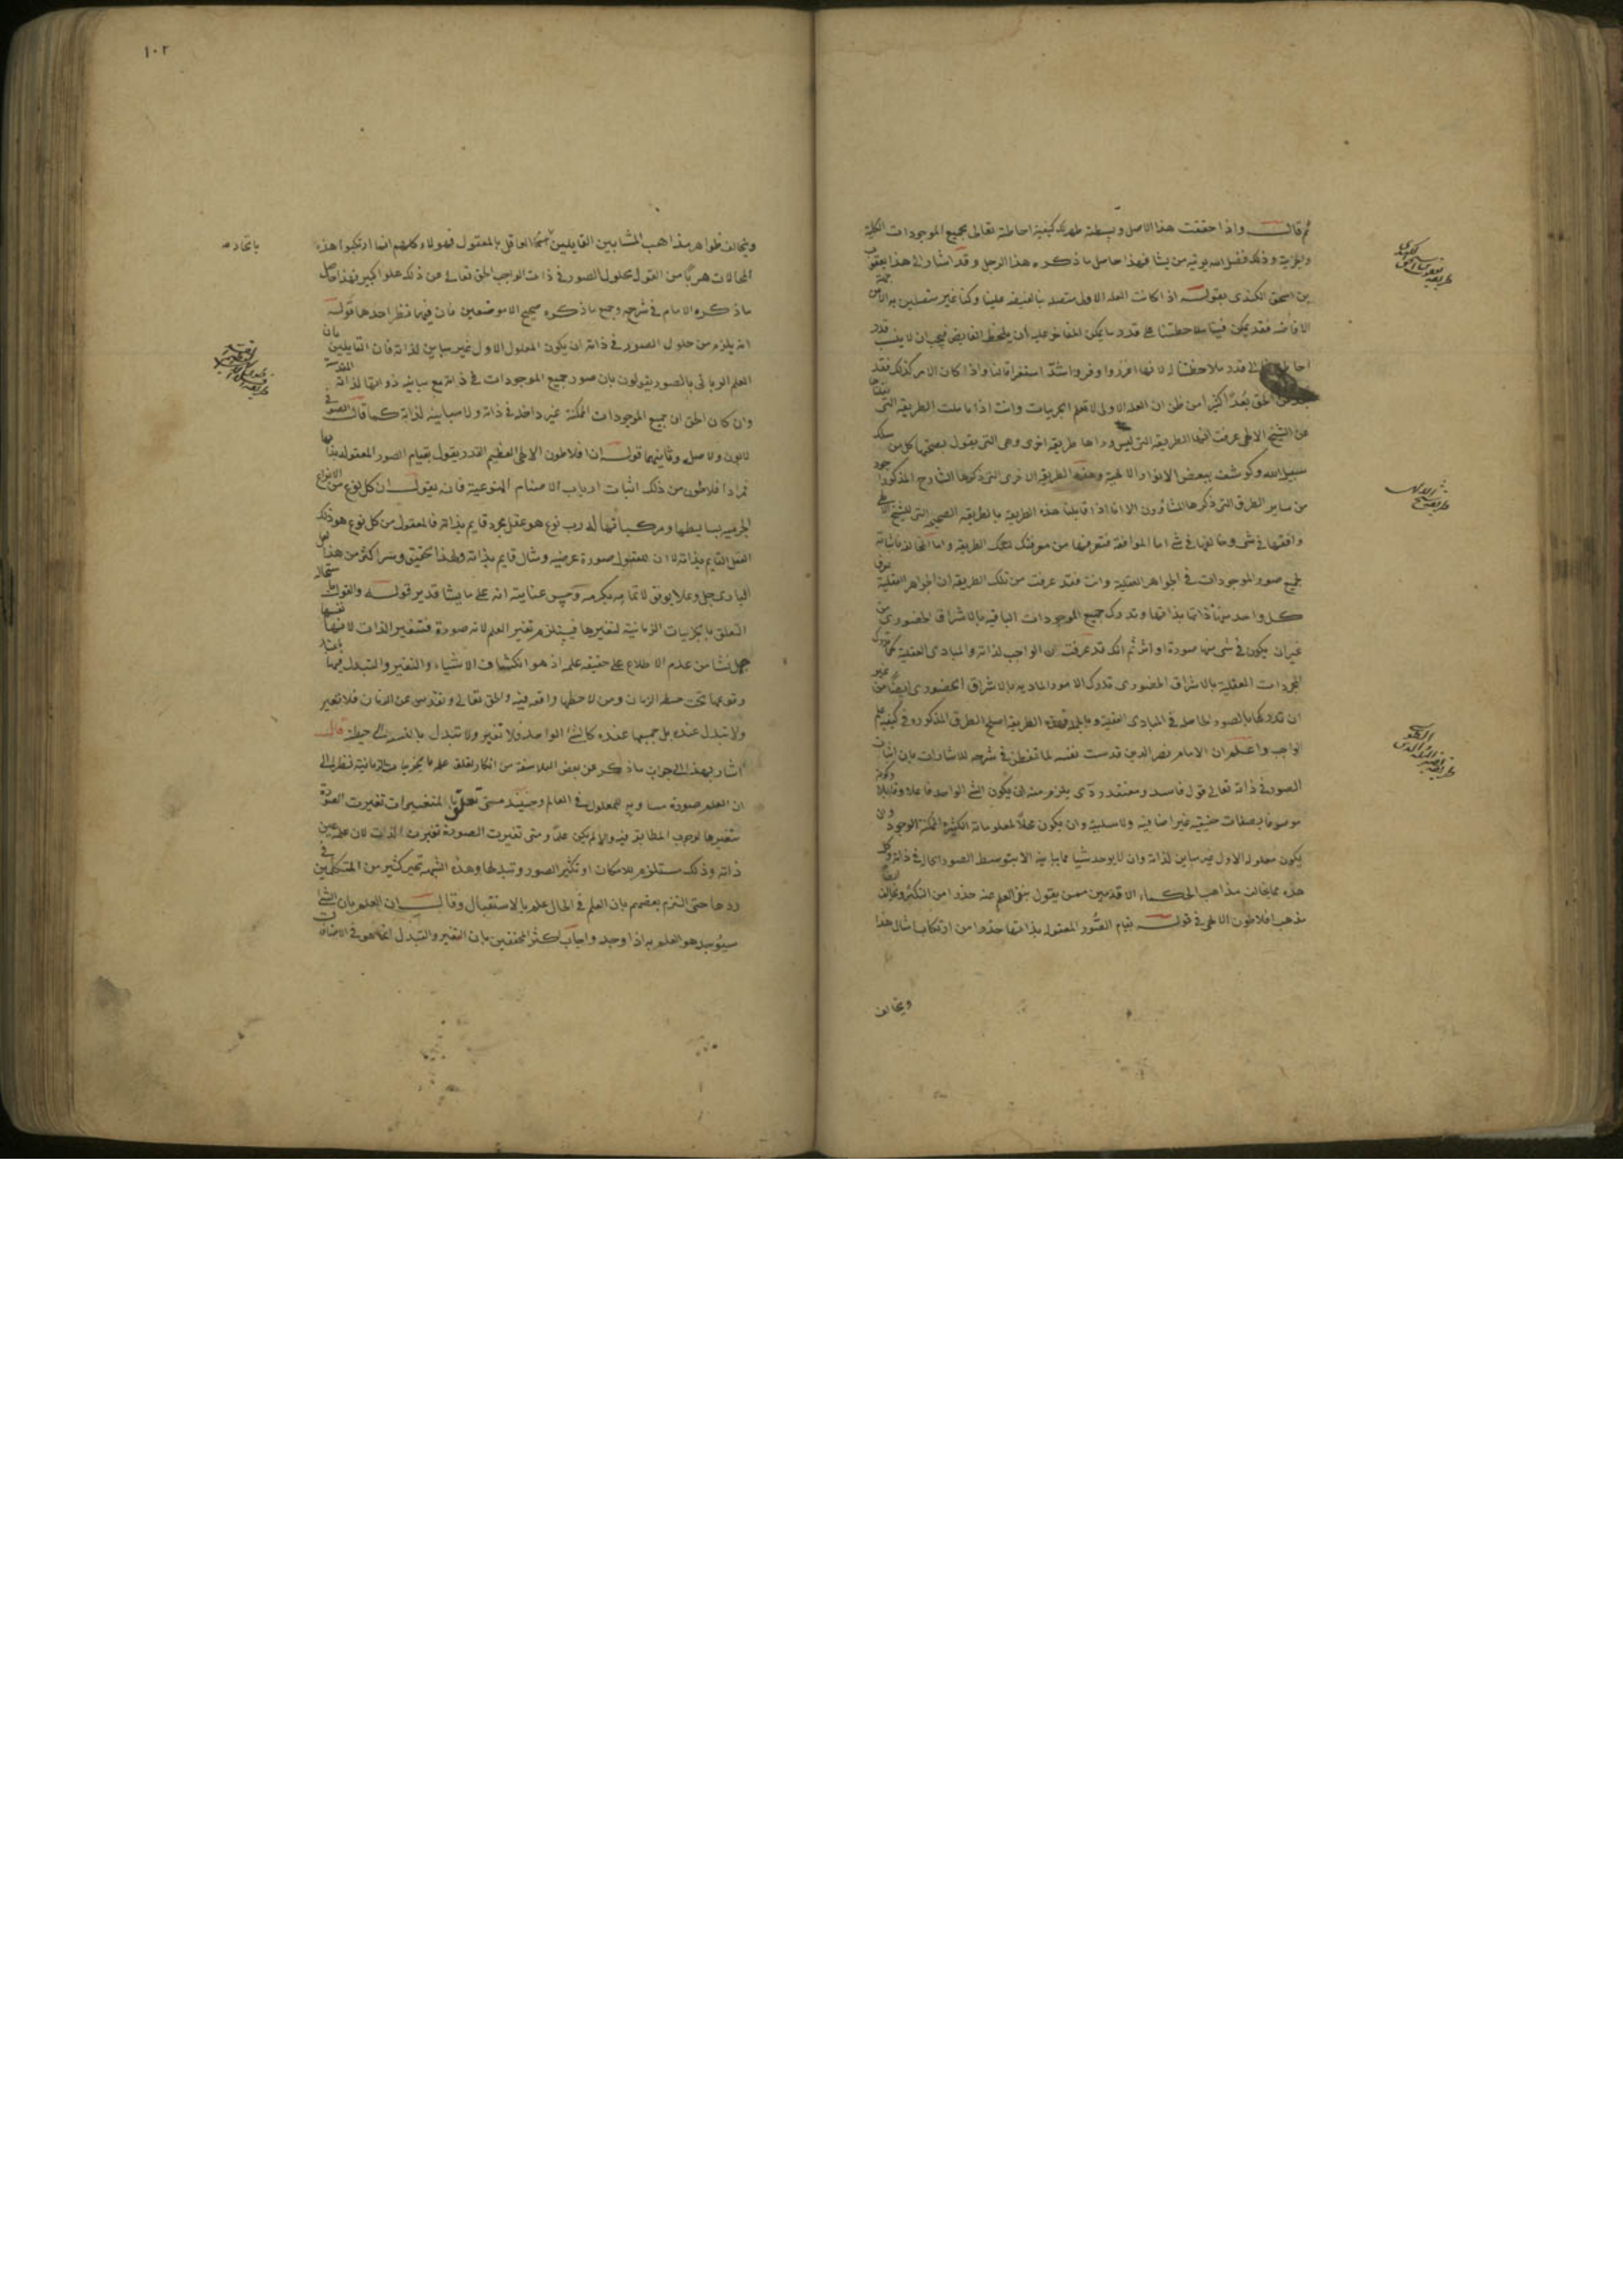 ثم قال واذا حققت هذا الاصل وبسطته ظهر لك كيفية احاطته تعالى بجميع الموجودات الكلية
والجزئية وذلك فضل الله يوتيه من يشا فهذا حاصل ما ذكره هذا الرجل وقد اشار الى هذا يعقوب
بن اسحق الكندى بقوله اذا كانت العلة الاولى متصلة بنا لفيضه علينا وكنا غير متصلين به الا من جهة
فقد يمكن فينا ملاحظته على قدر ما يمكن المفاض عليه ان يلحظ الفايض فيجب ان لا ينسب قدر
احاطته الى قدر ملاحظتنا له لانها اغزر واوفر واشد استغراقا لنا واذا كان الامر كذلك فقد
عن الحق بعدا كثيرا من ظن ان العلة الاولى لا تعلم الجزييات وانت اذا تاملت الطريقة التى
عن الشيخ الالهى عرفت انها الطريقة التى ليس وراها طريقة اخرى وهى التى يقول بصحتها كل من سلك
سبيل الله وكوشف ببعض الانوار الالهية وهذه الطريقة الاخرى التى ذكرها الشارح المذكور
من ساير الطرق التى ذكرها المشاوون الا انا اذا قابلنا هذه الطريقة بالطريقة الصحيحة التى للشيخ الالهى
وافقتها فى شى وخالفتها فى شى اما الموافقة فتعرفها من معرفتك لتلك الطريقة واما المخالفة فاثباته
لجميع صور الموجودات فى الجواهر العقلية وانت فقد عرفت من تلك الطريقة ان الجواهر العقلية
كل واحد منها ذاتها بذاتها وتدرك جميع الموجودات الباقية بالاشراق الحضورى من
غير ان يكون فى شى منها صورة او اثر ثم انك قد عرفت ان الواجب لذاته والمبادى العقلية كما تدرك
المجردات العقلية بالاشراق الحضورى تدرك الامور المادية بالاشراق الحضورى ايضا من غير
ان تدركها بالصور الحاصلة فى المبادى العقلية وبالجملة فهذه الطريقة اصلح الطرق المذكورة فى كيفية علم
الواجب واعلم ان الامام نصير الدين قدست نفسه لما تفطن فى شرحه للاشارات بان اثبات
الصور فى ذاته تعالى قول فاسد ومعتقد ردى يلزم منه ان يكون الشى الواحد فاعلا وقابلا وكونه
موصوفا بصفات حقيقية غير اضافية ولا سلبية وان يكون محلا لمعلولاته الكثيرة الممكنة الوجود وان
يكون معلوله الاول غير مباين لذاته وان لا يوجد شيا مما يباينه الا بتوسط الصور الحالة فى ذاته وكل
هذه مما يخالف مذاهب الحكماء الاقدمين ممن يقول بنفى العلم عنه حذرا من التكثر ويخالف ايضا
مذهب افلاطون الالهى فى قوله بقيام الصور المعقولة بذاتها حذرا من ارتكاب امثال هذا
ويخالف
١٠٢
ويخالف ظواهر مذاهب المشايين القايلين العاقل بالمعقول فهولاء كلهم انما ارتكبوا هذه
باتحاد
المحالات هربا من القول بحلول الصور فى ذات الواجب الحق تعالى عن ذلك علوا كبيرا فهذا حاصل
ما ذكره الامام فى شرحه وجميع ما ذكره صحيح الا موضعين فان فيهما نظر احدهما قوله
انه يلزم من حلول الصور فى ذاته ان يكون المعلول الاول غير مباين لذاته فان القايلين بان
العلم الربانى بالصور يقولون بان صور جميع الموجودات فى ذاته مع مباينه ذواتها لذاته المقدسة
وان كان الحق ان جميع الموجودات الممكنة غير داخلة فى ذاته ولا مباينة لذاته كما قالت الصوفية
لا بون ولا صل وثانيهما قوله ان افلاطون الالهى العظيم القدر يقول بقيام الصور المعقولة بذاتها
فمراد افلاطون من ذلك اثبات ارباب الاصنام النوعية فانه يقول ان كل نوع من الانواع
الجرمية بسايطها ومركباتها له رب نوع هو عقل مجرد قايم بذاته فالمعقول من كل نوع هو ذلك
العقل القايم بذاته لا ان للمعقول صورة عرضية ومثال قايم بذاته ولهذا تحقيق وسر اكثر من هذا لعل
البارى جل وعلا يوفق لاتمامه بكرمه وحسن عنايته انه على ما يشا قدير قوله والقول باستحالة
التعلق بالجزييات الزمانية لتغيرها فيستلزم تغير العلم لانه صورة فتتغير الذات لانها نفسها
جهل نشا من عدم الاطلاع على حقيقة علمه اذ هو انكشاف الاشياء والتغير والتبدل فيها باعتبار
وقوعها تحت حيطة الزمان ومن لاحظها واقعة فيه والحق تعالى وتقدس عن الزمان فلا تغير
ولا تبدل عنده بل جميعها عنده كالشى الواحد فلا تغير ولا تبدل بالنسبة الى حيطته قال
اشار بهذا الى جواب ما ذكر عن بعض الفلاسفة من انكار تعلق علمه بالجزييات الزمانية فنظر الى
ان العلم صورة مساوية للمعلول فى العالم وحينيذ متى تعلق بالمتغيرات تغيرت الصورة
بتغيرها لوجوب المطابقة فيه والا لم يكن علما ومتى تغيرت الصورة تغيرت الذات لان علمه عين
ذاته وذلك مستلزم للامكان او تكثر الصور وتبدلها وهذه الشبهة تحير كثير من المتكلمين فى
ردها حتى التزم بعضهم بان العلم فى الحال علم بالاستقبال وقال ان العلم بان الشى
سيوجد هو العلم به اذا وجد واجاب اكثر المحققين بان التغير والتبدل انما هو فى الاضافات